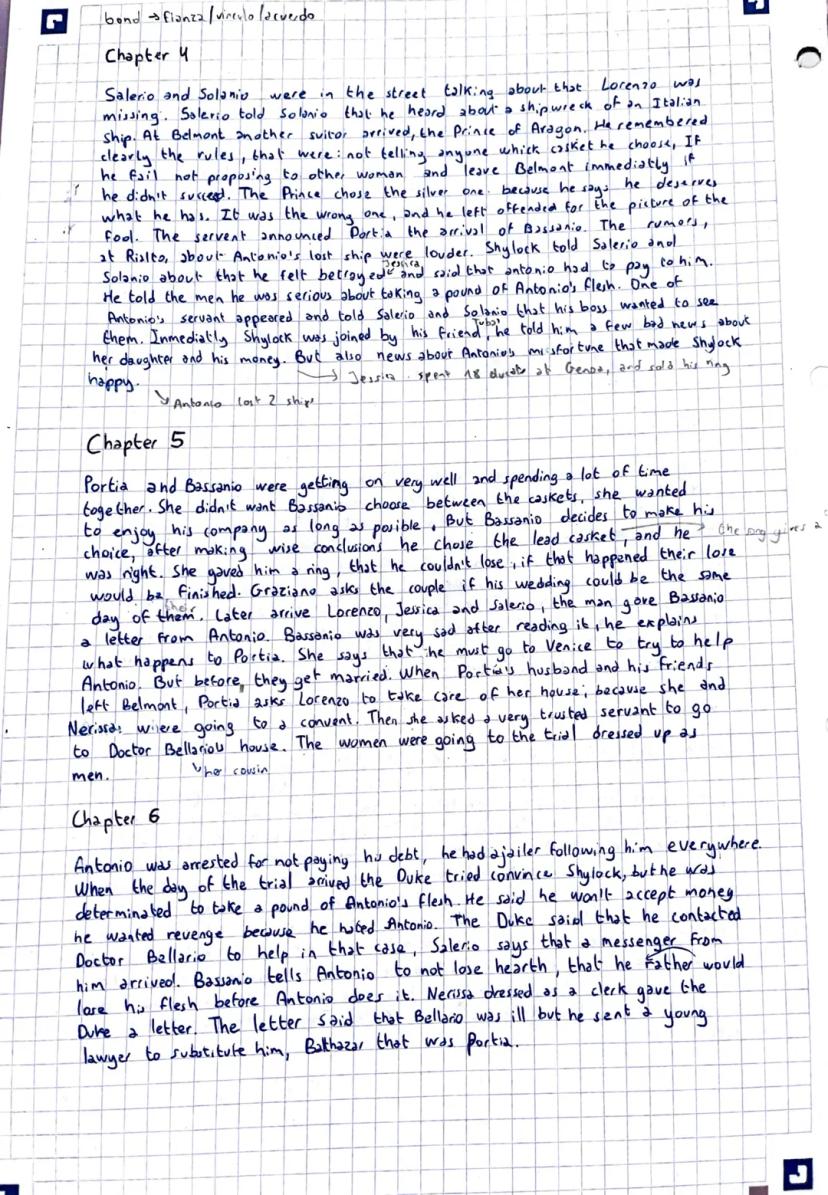 bond → fianza/vinculo/acuerdo
Chapter 4
Salerio and Solanio were in the street talking about that Lorenzo was
missing. Salerio told Solanio that he heard about a shipwreck of an Italian
ship. At Belmont another suitor arrived, the Prince of Aragon. He remembered
clearly the rules, that were: not telling anyone which casket he choose, If
he fail not proposing to other woman and leave Belmont immediatly if
he didn't succed. The Prince chose the silver one because he says he deserves
what he has. It was the wrong one, and he left offended for the picture of the
fool. The servent announced Portia the arrival of Bassanio. The rumors,
at Rialto, about Antonio's lost ship were louder. Shylock told Salerio and
Jessica
Solanio about that he felt betrayed and said that antonio had to pay to him.
He told the men he was serious about taking a pound of Antonio's flesh. One of
Antonio's servant appeared and told Salerio and Solanio that his boss wanted to see
Tubal
them. Inmediatly Shylock was joined by his friend, he told him a few bad news about
her daughter and his money. But also news about Antonio's misfortune that made Shylock
happy. → Jessica spent 18 ducats at Genoa, and sold his ring
Antonio lost 2 ships
Chapter 5
Portia and Bassanio were getting on very well and spending a lot of time
together. She didn't want Bassanio choose between the caskets, she wanted
to enjoy his company as long as posible. But Bassanio decides to make his
choice, after making wise conclusions he chose the lead casket, and he → the song gives a
was right. She gaved him a ring, that he couldn't lose, if that happened their love
would be finished. Graziano asks the couple if his wedding could be the same
their
day of them. Later arrive Lorenzo, Jessica and Salerio, the man gave Bassanio
a letter from Antonio. Bassanio was very sad after reading it, he explains
what happens to Portia. She says that he must go to Venice to try to help
Antonio. But before, they get married. When Portia's husband and his friends
left Belmont, Portia asks Lorenzo to take care of her house; because she and
Nerissa: where going to a convent. Then she asked a very trusted servant to go
to Doctor Bellario's house. The women were going to the trial dressed up as
men. her cousin
Chapter 6
Antonio was arrested for not paying his debt, he had a jailer following him everywhere.
When the day of the trial arrived the Duke tried convince Shylock, but he was
determinated to take a pound of Antonio's flesh. He said he won't accept money
he wanted revenge because he hated Antonio. The Duke said that he contacted
Doctor Bellario to help in that case, Salerio says that a messenger from
him arrived. Bassanio tells Antonio to not lose hearth, that he rather would
lose his flesh before Antonio does it. Nerissa dressed as a clerk gave the
Duke a letter. The letter said that Bellario was ill but he sent a young
lawyer to substitute him, Balthazar that was Portia.